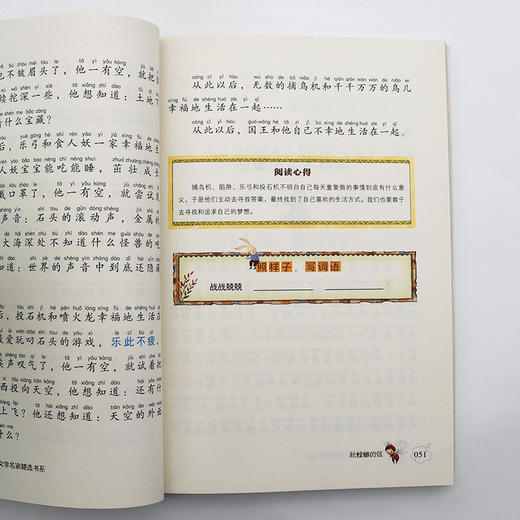 也不皱眉头了，他一有空，就把
续挖深一些，他想知道：土地下
有什么宝藏？
后，乐弓和食人妖一家幸福地生
人妖宝宝能吃能睡，茁壮成长
戴口罩了，他一有空，就尝试
声音：石头的滚动声，金属
大海深处不知道什么怪兽的吼
道：世界的声音中到底还隐藏
后，投石机和喷火龙幸福地生活在
最爱玩叼石头的游戏，乐此不疲，
唉声叹气了，他一有空，就试着把
西投向天空，他想知道：还有什
上飞？他还想知道：天空的外面
什么？
文学名家精选书系
cóng cǐ yǐ hòu， wú shù de bǔ niǎo jī hé qiān qiān wàn wàn de niǎo er
从此以后，无数的捕鸟机和千千万万的鸟儿
xìng fú de shēng huó zài yì qǐ
幸福地生活在一起……
cóng cǐ yǐ hòu， guó wáng hé tā zì jǐ bú xìng de shēng huó zài yì qǐ
从此以后，国王和他自己不幸地生活在一起。
阅读心得
捕鸟机、陷阱、乐弓和投石机不明白自己每天重复做的事情到底有什么意
义，于是他们主动去寻找答案，最终找到了自己喜欢的生活方式。我们也要敢于
去寻找和追求自己的梦想。
照样子，写词语
战战兢兢
秋螳螂的信
051